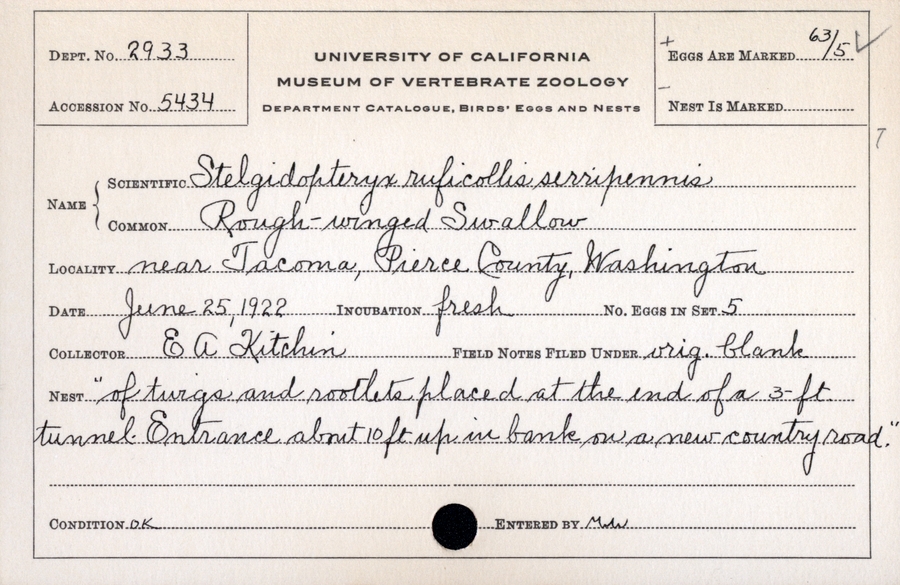 Dept. No. 2933
Accession No. 5434
UNIVERSITY OF CALIFORNIA
MUSEUM OF VERTEBRATE ZOOLOGY
Department Catalogue, Birds' Eggs and Nests
+ Eggs Are Marked 63/5 ✓
– Nest Is Marked
7
Name { Scientific Stelgidopteryx ruficollis serripennis
Common Rough-winged Swallow
Locality near Tacoma, Pierce County, Washington
Date June 25, 1922 Incubation fresh No. Eggs in Set 5
Collector E A Kitchin Field Notes Filed Under orig. blank
Nest "of twigs and rootlets placed at the end of a 3-ft
tunnel. Entrance about 10 ft up in bank on a new country road."
Condition OK Entered by